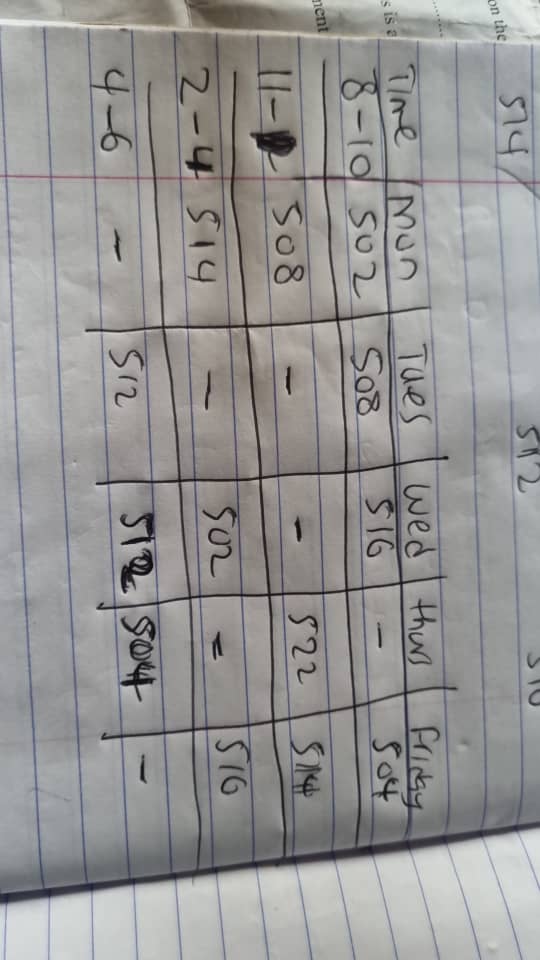 on the
s is a
ment
514 512 510
Time Mon Tues Wed thurs Friday
8-10 502 508 516 - 504
11- 508 - - 522 514
2-4 514 - 502 - 516
4-6 - 512 512 504 -